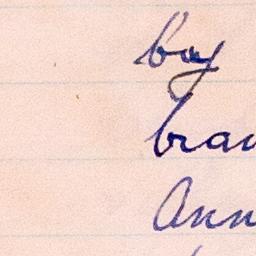 boy
bran
Ann